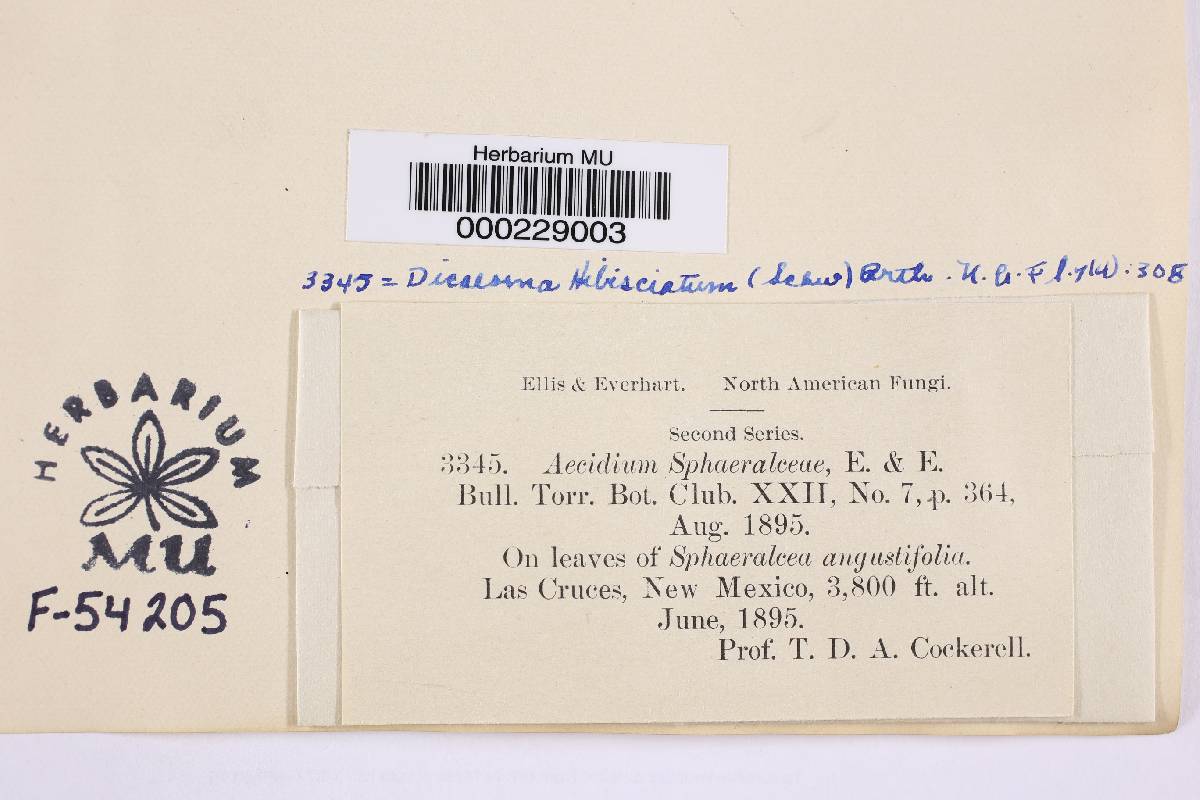 Herbarium MU
000229003
3345 = Dicaeoma Hibisciatum (Schw) Arth. N. A. Fl. 7(4):308
Ellis & Everhart. North American Fungi.
Second Series.
3345. Aecidium Sphaeralceae, E. & E.
Bull. Torr. Bot. Club. XXII, No. 7, p. 364,
Aug. 1895.
On leaves of Sphaeralcea angustifolia.
Las Cruces, New Mexico, 3,800 ft. alt.
June, 1895.
Prof. T. D. A. Cockerell.
HERBARIUM
MU
F-54205